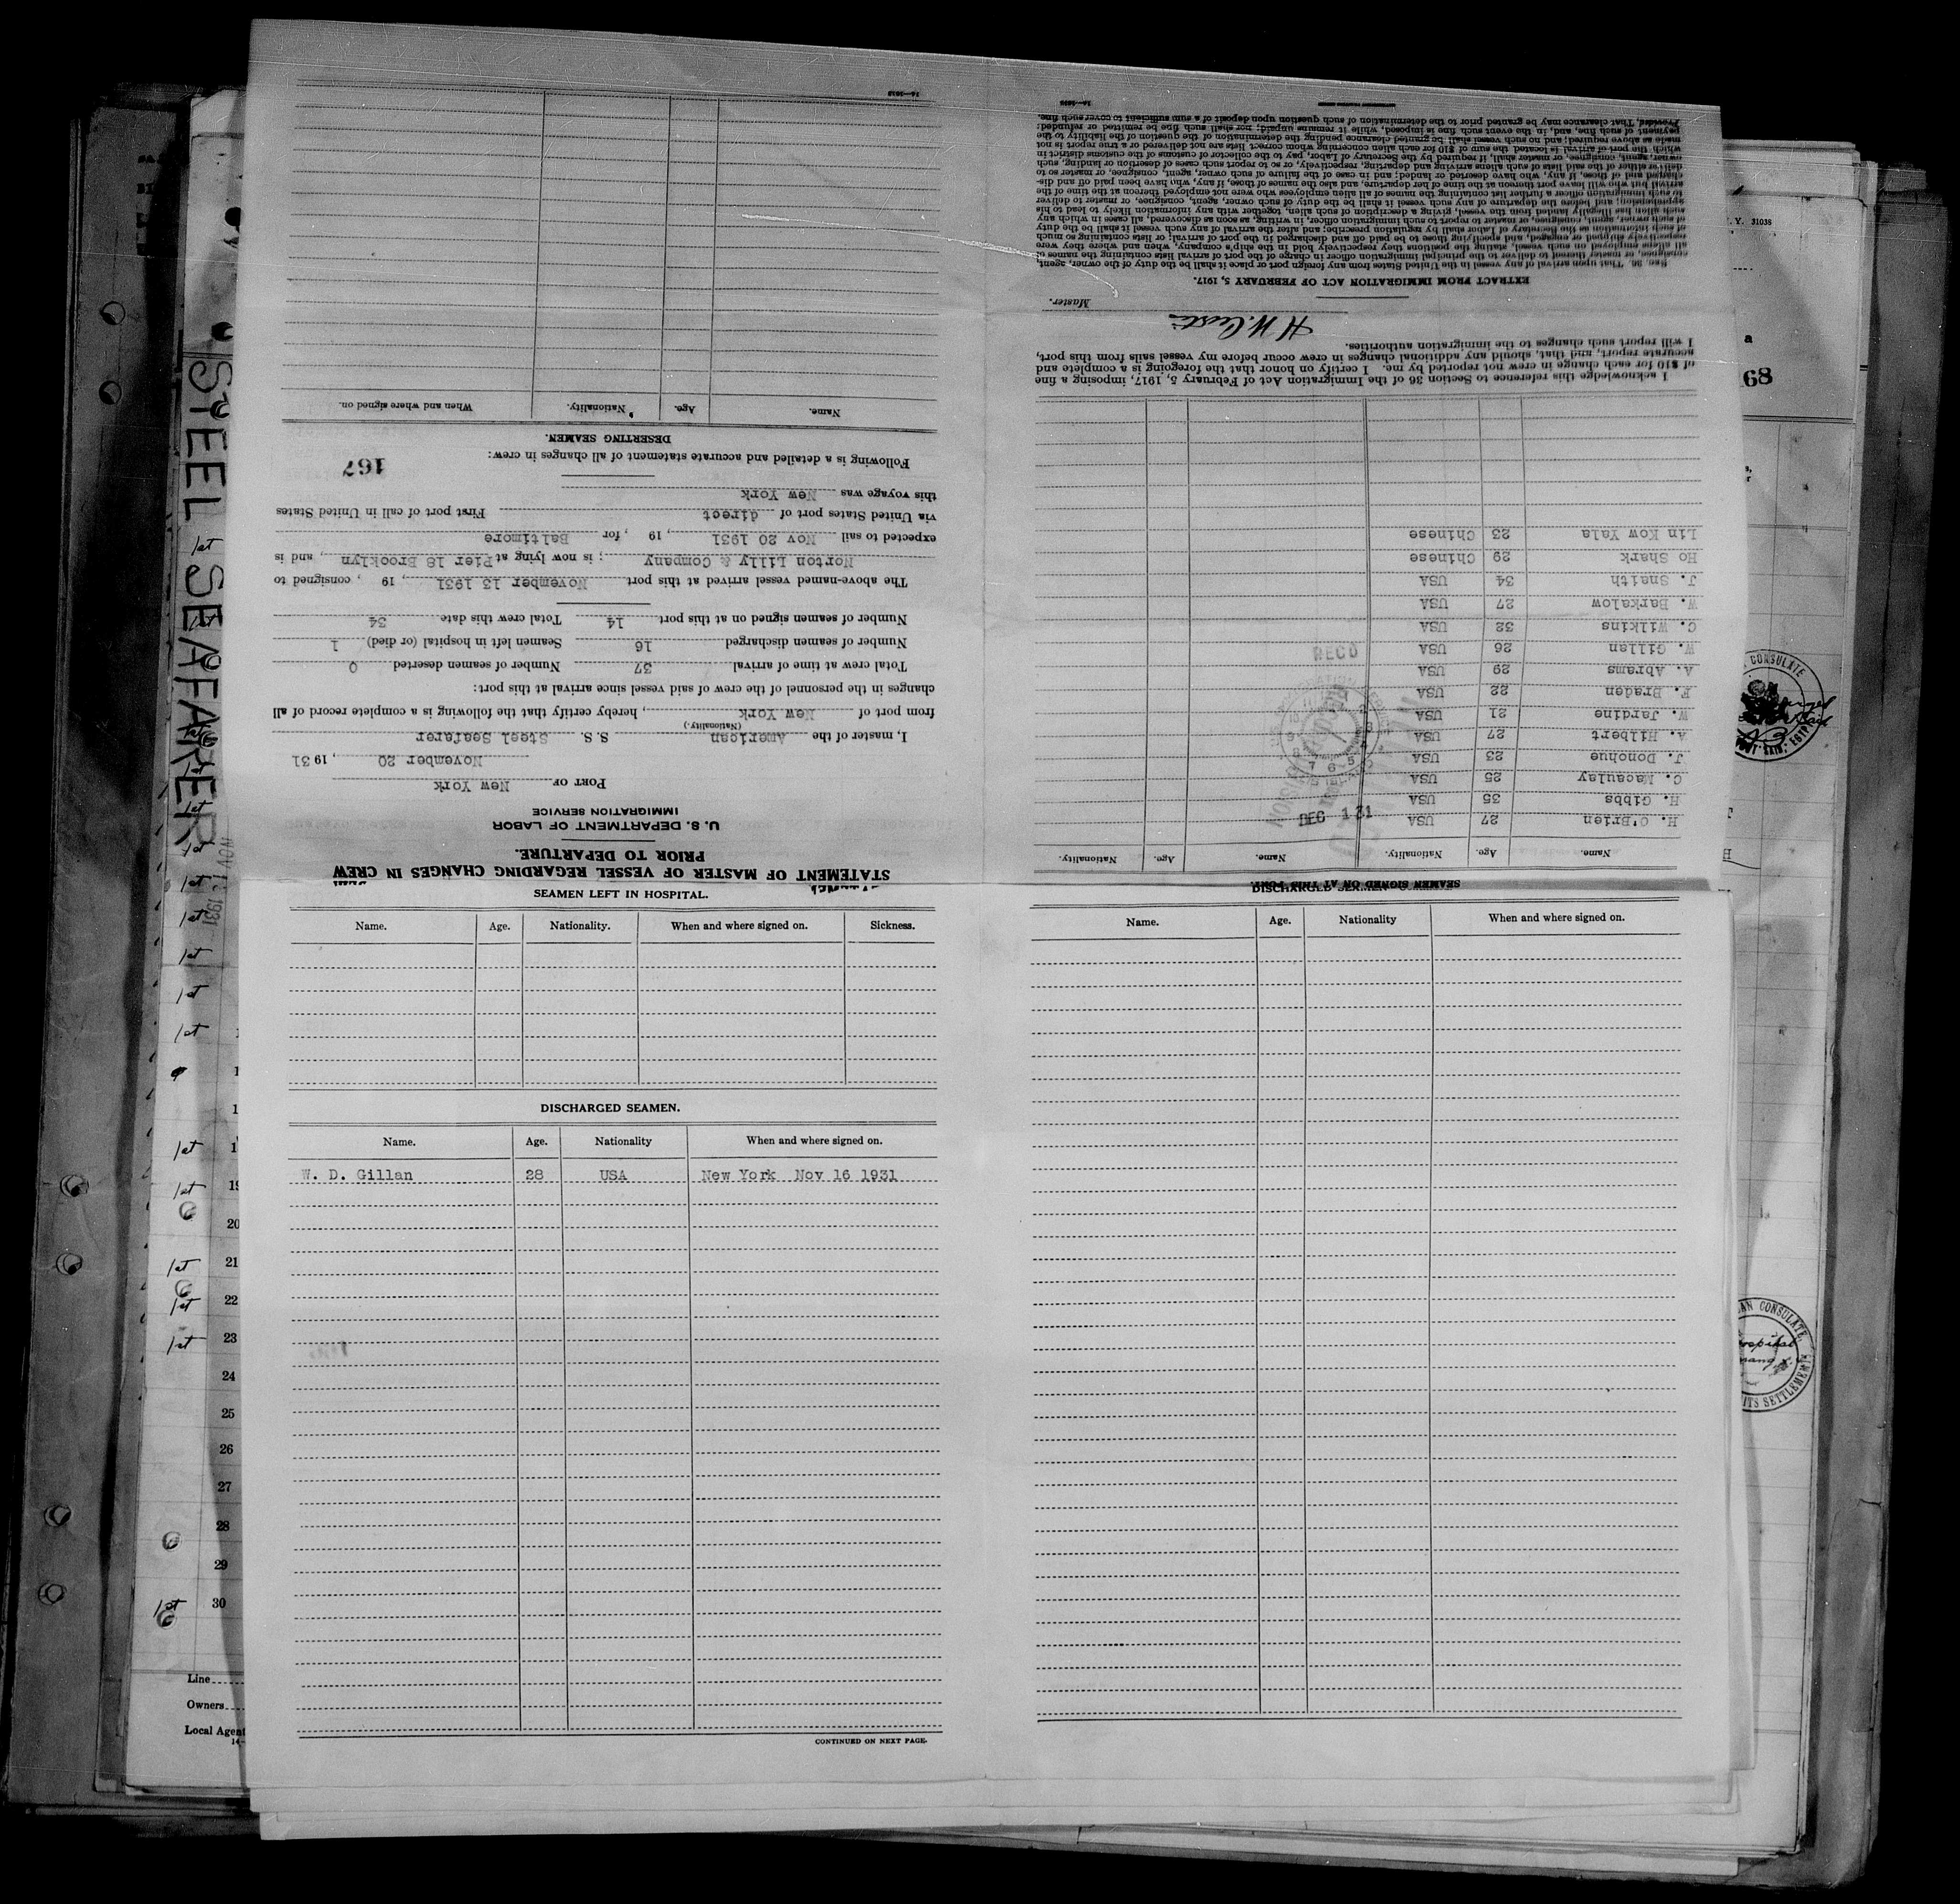 STATEMENT OF MASTER OF VESSEL REGARDING CHANGES IN CREW
PRIOR TO DEPARTURE.
U. S. DEPARTMENT OF LABOR
IMMIGRATION SERVICE
PORT OF New York
November 20, 1931
I, master of the American S. S. Steel Seafarer
(Nationality.)
from port of New York, hereby certify that the following is a complete record of all
changes in the personnel of the crew of said vessel since arrival at this port:
Total crew at time of arrival 37 Number of seamen deserted 0
Number of seamen discharged 16 Seamen left in hospital (or died) 1
Number of seamen signed on at this port 14 Total crew this date 34
The above-named vessel arrived at this port November 13 1931, 19 , consigned to
Norton Lilly & Company; is now lying at Pier 18 Brooklyn, and is
expected to sail Nov 20 1931, 19 , for Baltimore
via United States port of direct First port of call in United States
this voyage was New York
167
Following is a detailed and accurate statement of all changes in crew:
DESERTING SEAMEN.
Name. Age. Nationality. When and where signed on.
14—1018
SEAMEN SIGNED ON AT THIS PORT.
Name. Age. Nationality. Name. Age. Nationality.
H. O'Brien 27 USA
H. Gibbs 35 USA
C. Macaulay 25 USA
J. Donohue 23 USA
A. Hilbert 27 USA
W. Jardine 21 USA
F. Braden 22 USA
A. Abrams 29 USA
W. Gillan 26 USA
C. Wilkins 32 USA
W. Barkalow 27 USA
J. Snaith 34 USA
Ho Shark 29 Chinese
Lin Kow Yala 23 Chinese
DEC 1 31
REC'D
I acknowledge this reference to Section 36 of the Immigration Act of February 5, 1917, imposing a fine
of $10 for each change in crew not reported by me. I certify on honor that the foregoing is a complete and
accurate report, and that, should any additional changes in crew occur before my vessel sails from this port,
I will report such changes to the immigration authorities.
Master.
EXTRACT FROM IMMIGRATION ACT OF FEBRUARY 5, 1917.
Sec. 36. That upon arrival of any vessel in the United States from any foreign port or place it shall be the duty of the owner, agent,
consignee, or master thereof to deliver to the principal immigration officer in charge of the port of arrival lists containing the names of
all aliens employed on such vessel, stating the positions they respectively hold in the ship's company, when and where they were
respectively shipped or engaged, and specifying those to be paid off and discharged in the port of arrival; or lists containing so much
of such information as the Secretary of Labor shall by regulation prescribe; and after the arrival of any such vessel it shall be the duty
of such owner, agent, consignee, or master to report to such immigration officer, in writing, as soon as discovered, all cases in which any
such alien has illegally landed from the vessel, giving a description of such alien, together with any information likely to lead to his
apprehension; and before the departure of any such vessel it shall be the duty of such owner, agent, consignee, or master to deliver
to such immigration officer a further list containing the names of all alien employees who were not employed thereon at the time of the
arrival but who will leave port thereon at the time of her departure, and also the names of those, if any, who have been paid off and dis-
charged and of those, if any, who have deserted or landed; and in case of the failure of such owner, agent, consignee, or master so to
deliver either of the said lists of such aliens arriving and departing, respectively, or so to report such cases of desertion or landing, such
owner, agent, consignee, or master shall, if required by the Secretary of Labor, pay to the collector of customs of the customs district in
which the port of arrival is located the sum of $10 for each alien concerning whom correct lists are not delivered or a true report is not
made as above required; and no such vessel shall be granted clearance pending the determination of the question of the liability to the
payment of such fine, and, in the event such fine is imposed, while it remains unpaid; nor shall such fine be remitted or refunded:
Provided, That clearance may be granted prior to the determination of such question upon deposit of a sum sufficient to cover such fine.
14—1018
SEAMEN LEFT IN HOSPITAL.
Name. Age. Nationality. When and where signed on. Sickness.
DISCHARGED SEAMEN.
Name. Age. Nationality When and where signed on.
W. D. Gillan 28 USA New York Nov 16 1931
CONTINUED ON NEXT PAGE.
Name. Age. Nationality When and where signed on.
STEEL SEAFARER
1st
1st
1st
1st
1st
1st
1st
1st
1st
1st
1st 19
20
1st 21
1st 22
1st 23
24
25
26
27
28
29
1st 30
Line
Owners
Local Agent
N. Y. 31038
a
68
CONSULATE
PORT SAID, EGYPT
CONSULATE
Hospital
SETTLEMENTS